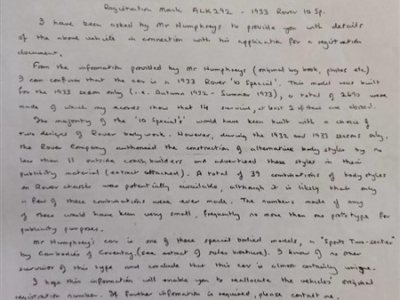 Registration Mark ALK 292 - 1933 Rover 10 Sp.
I have been asked by Mr Humphreys to provide you with details
of the above vehicle in connection with his application for a registration
document.
From the information provided by Mr Humphreys (original log book, photos etc)
I can confirm that the car is a 1933 Rover '10 Special'. This model was built
for the 1933 season only (i.e. Autumn 1932 - Summer 1933), a total of
made of which my records show that 14 survive, at least 2 of them are abroad.
The majority of the '10 Special's' would have been built with a choice of
two designs of Rover bodywork. However, during the 1932 and 1933 seasons only,
the Rover Company authorised the construction of alternative body styles by no
less than 11 outside coachbuilders and advertised these styles in their
publicity material (extract attached). A total of 39 combinations of body styles
on Rover chassis were potentially available, although it is likely that only
a few of these combinations were ever made. The numbers made of any
of these would have been very small, frequently no more than one prototype for
publicity purposes.
Mr Humphreys' car is one of these special bodied models, a "Sports Two-seater"
by Cambodies of Coventry (see extract of sales brochure). I know of no other
survivor of this type and conclude that this car is almost certainly unique.
I hope this information will enable you to reallocate the vehicles original
registration number. If further information is required, please contact me.